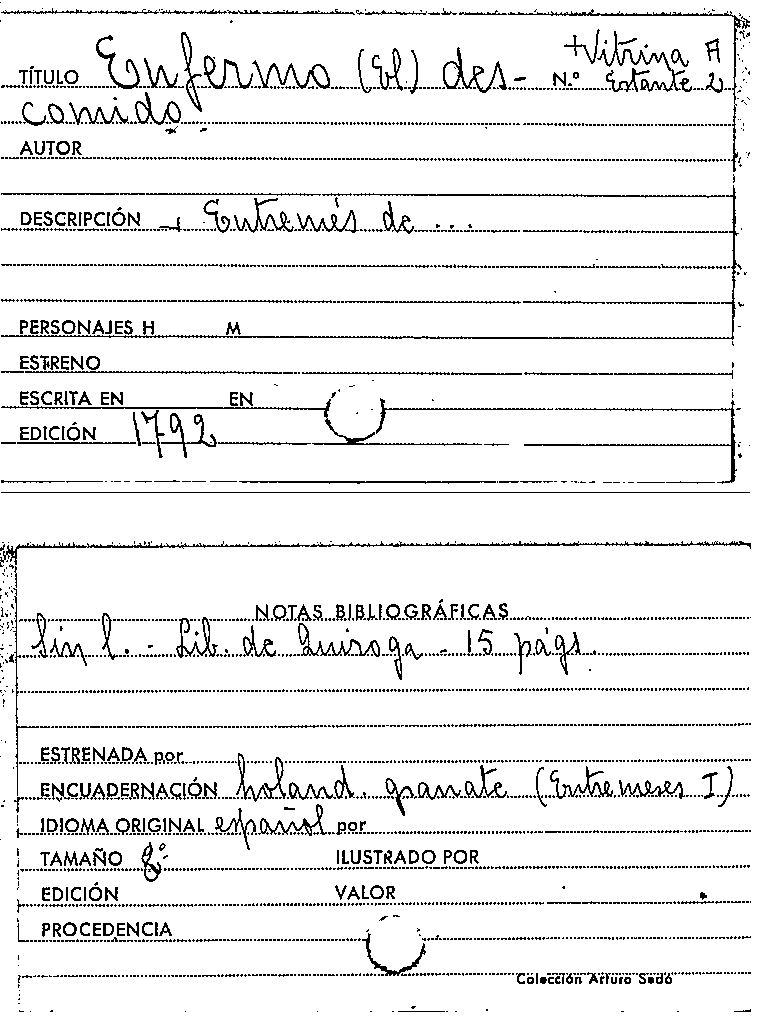 +Vitrina A
TÍTULO Enfermo (El) des- N.º Estante 2
comido
AUTOR
DESCRIPCIÓN Entremés de ...
PERSONAJES H M
ESTRENO
ESCRITA EN EN
EDICIÓN 1792
NOTAS BIBLIOGRÁFICAS
Sin l. - Lib. de Quiroga - 15 págs.
ESTRENADA por
ENCUADERNACIÓN holand. granate (Entremeses I)
IDIOMA ORIGINAL español por
TAMAÑO 8º ILUSTRADO POR
EDICIÓN VALOR
PROCEDENCIA
Colección Arturo Sedó